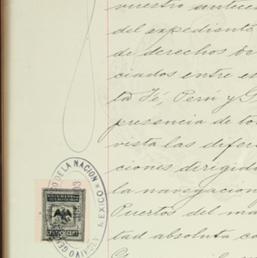 nuestro antece
del expediente
de derechos be
ciados entre es
ta Fé, Perú y G
presencia de to
vista las difer
ciones dirigid
la navegacion
Puertos del ma
tad absoluta co
O DE LA NACION
MEXICO